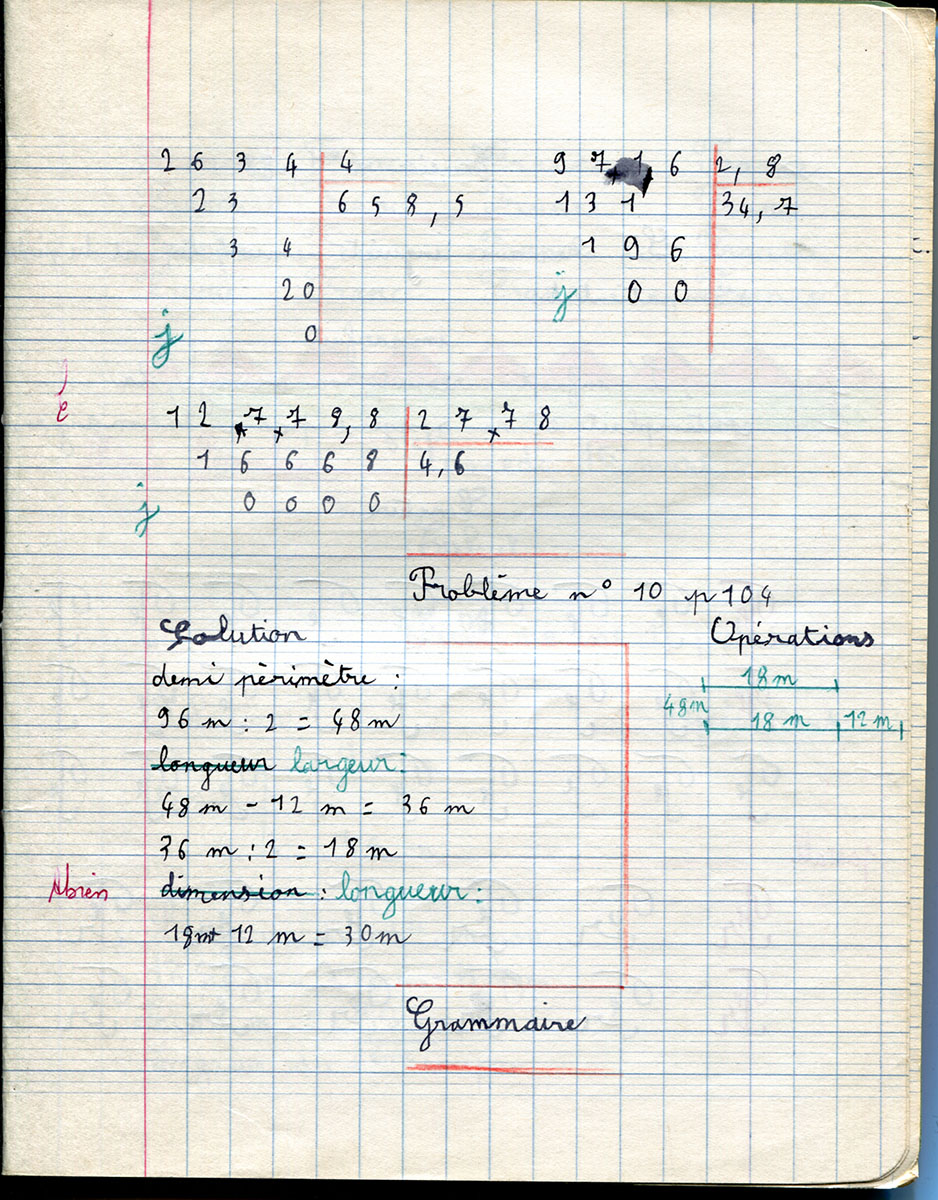 2634 4
23 658,5
34
20
j 0
97,16 2,8
131 34,7
196
j 00
12 7 7 9,8 27,78
16668 4,6
j 0000
Problème n° 10 p 104
Solution
Opérations
demi périmètre :
96 m : 2 = 48 m
longueur largeur :
48 m - 12 m = 36 m
36 m : 2 = 18 m
dimension : longueur :
18m+ 12 m = 30m
18 m
48m
18 m 12 m
Abien
Grammaire